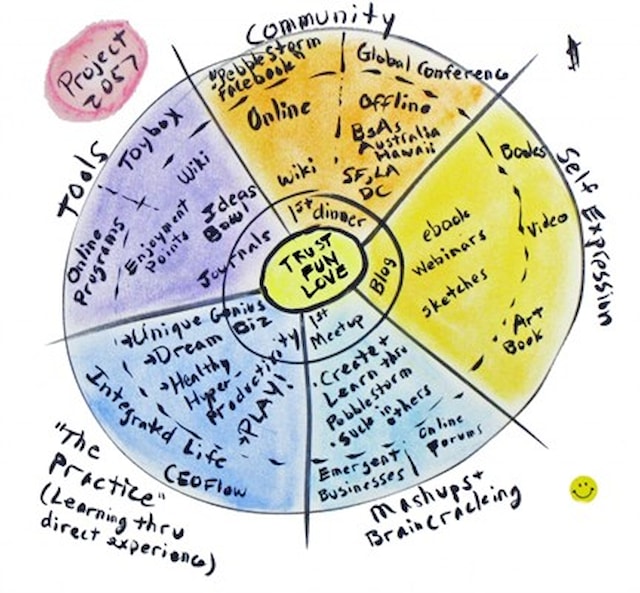 Project
2057
$
Community
"Pebblestorm
Facebook"
Global Conference
Online
Offline
BsAs
Australia
Hawaii
SF, LA
DC
wiki
1st dinner
Tools
Toybox
Wiki
Ideas
Bowl
Online
Programs
Enjoyment
Points
Journals
TRUST
FUN
LOVE
Self Expression
Books
Video
Art
Book
ebook
Webinars
sketches
Blog
→Unique Genius
Biz
→Dream
→Healthy
Hyper-
Productivity
→PLAY!
Integrated Life
CEOFlow
"The
Practice"
(Learning thru
direct experience)
1st
Meetup
•Create+
Learn thru
Pebblestorm
•Suck in
others
Online
Forums
Emergent
Businesses
Mashups+
Braincracking